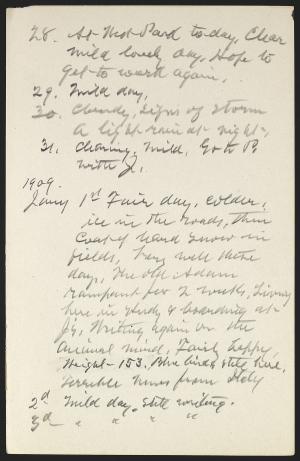 28. At West Park to-day, Clear
mild lovely day. Hope to
get to work again.
29. Mild day,
30. Cloudy, signs of storm
A light rain at night,
31. Clearing, mild. Go to P.
with J.
1909.
Jany 1st Fair day, colder,
ice in the roads, thin
coat of hard snow in
fields, Very well these
days, The old Adam
rampant for 2 weeks, Living
here in study & boarding at
J's. Writing again on the
animal mind, Fairly happy,
Weight - 153, Blue birds still here,
Terrible news from Italy
2d Mild day, still writing.
3d " " " "